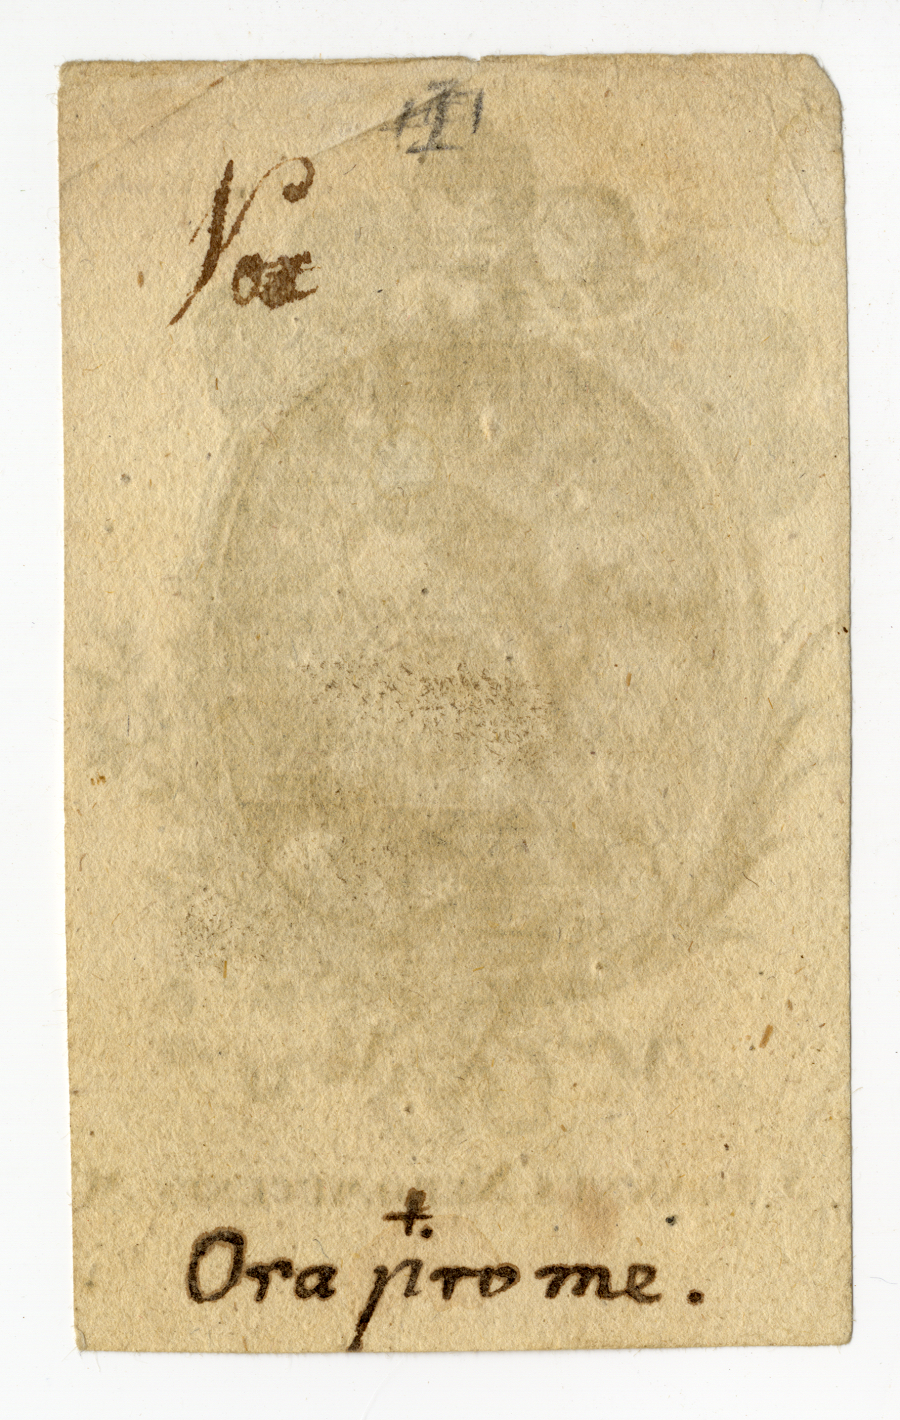 Vox
+.
Ora pro me.